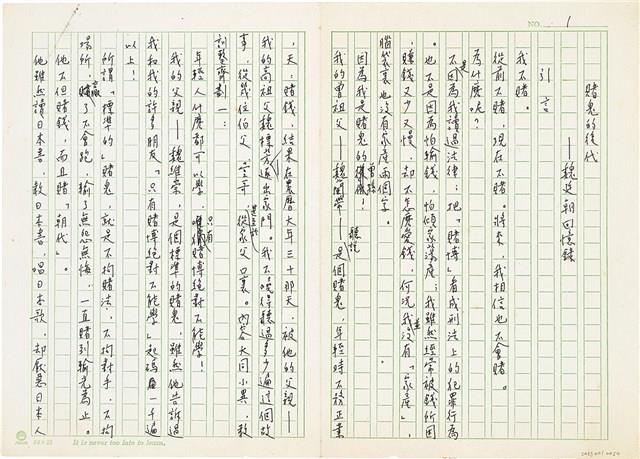 NO. 1
賭鬼的後代
——魏廷朝回憶錄
引言
我不賭。
從前不賭,現在不賭。將來,我相信也不會賭。
為什麼呢?
不是因為我讀過法律:把「賭博」看成刑法上的犯罪行為
。也不是因為怕輸錢,怕傾家蕩產;我雖然經常被錢所困
,賺錢又少又慢,却不怎麼愛錢,何況我並沒有「家產」,
腦袋裏也沒有家產兩個字。
因為我是賭鬼的曾孫!
我的曾祖父——魏——聽說是個賭鬼,年輕時不務正業
,天天賭錢,結果在農曆大年三十那天,被他的父親——
我的高祖父魏標芳逐出家門。我不曉得聽過多少遍這個故
事,從幾位伯父、堂哥、還有從家父口裏。內容大同小異,教
訓整齊劃一:
年輕人什麼都可以學,只有賭博絕對不能學!
我的父親——魏維崇,是個標準的賭鬼,雖然他告訴過
我和我的許多朋友「只有賭博絕對不能學」起碼一千遍
以上!
所謂「標準的」賭鬼,就是不拘賭法,不拘對手,不拘
場所,贏了不會跑,輸了無怨無悔,一直賭到輸光為止。
他不但賭錢,而且賭「朝代」。
他雖然讀日本書,教日本書,唱日本歌,却厭惡日本人
It is never too late to learn.